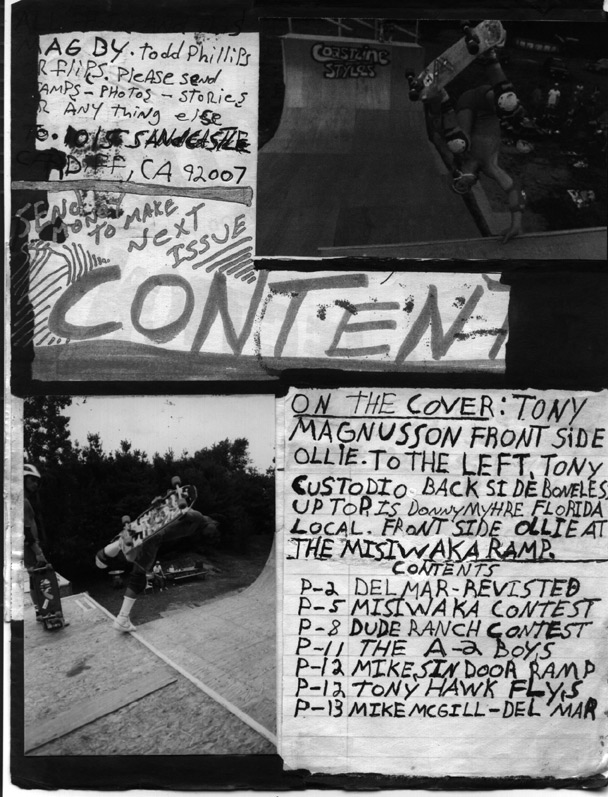 AG BY. Todd Phillips
R flips. Please send
AMPS - PHOTOS - STORIES
R ANY Thing else
SANDCASTLE
CARDIFF, CA 92007
SEND
TO MAKE
NEXT
ISSUE
COASTLINE
STYLES
CONTENT
ON THE COVER: TONY
MAGNUSSON FRONT SIDE
OLLIE. TO THE LEFT, TONY
CUSTODIO BACKSIDE BONELES
UP TOP IS DONNY MYHRE FLORIDA
LOCAL. FRONT SIDE OLLIE AT
THE MISIWAKA RAMP.
CONTENTS
P-2 DEL MAR-REVISTED
P-5 MISIWAKA CONTEST
P-8 DUDE RANCH CONTEST
P-11 THE A-2 BOYS
P-12 MIKES INDOOR RAMP
P-12 TONY HAWK FLYS
P-13 MIKE MCGILL-DEL MAR